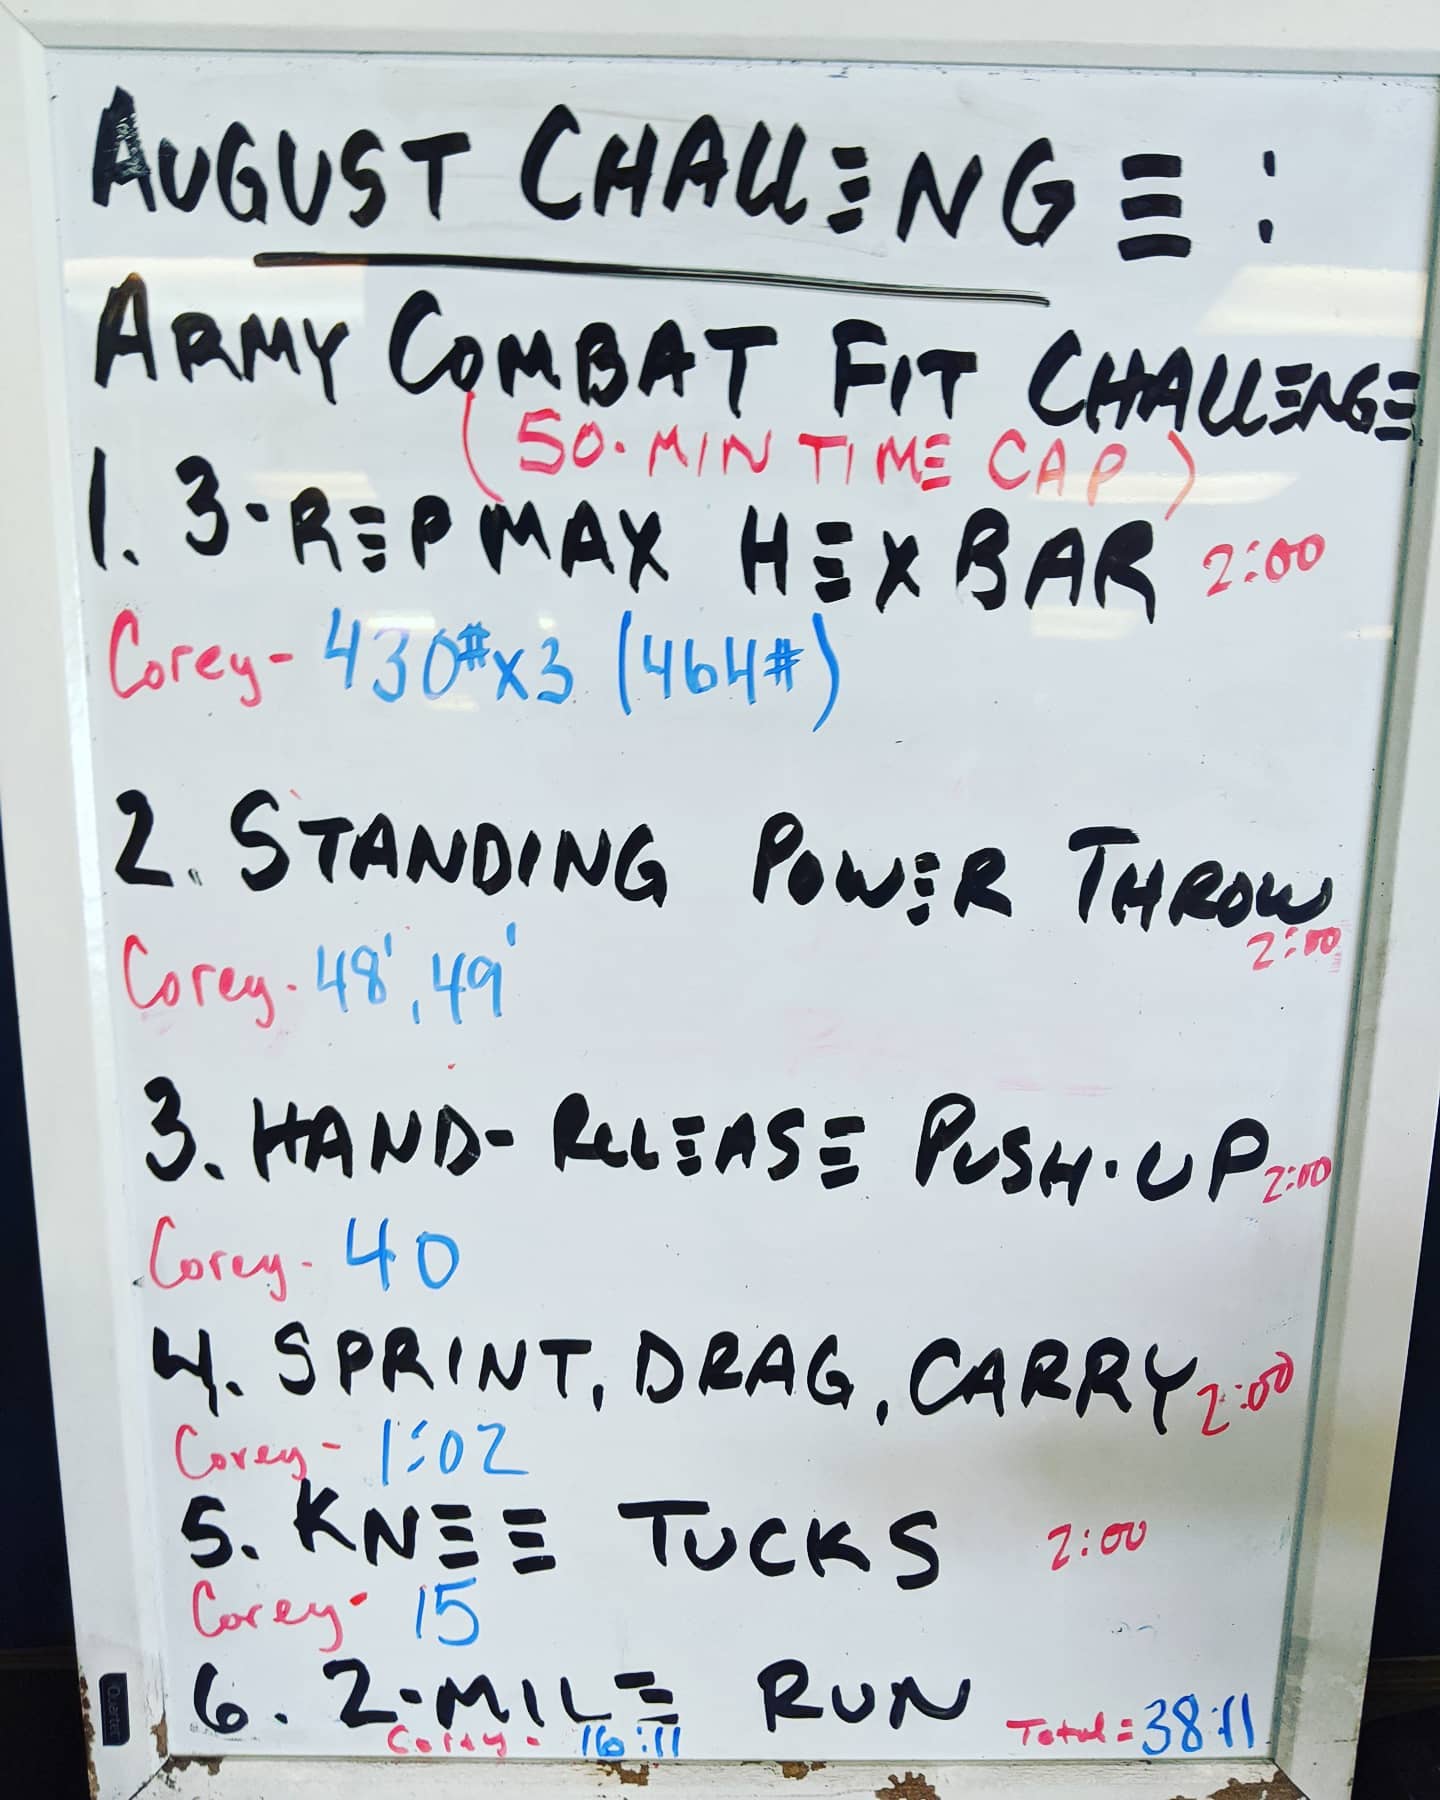 AUGUST CHALLENGE:
ARMY COMBAT FIT CHALLENGE
(50-MIN TIME CAP)
1. 3-REP MAX HEX BAR 2:00
Corey- 430#x3 (464#)
2. STANDING POWER THROW
2:00
Corey- 48', 49'
3. HAND-RELEASE PUSH-UP 2:00
Corey- 40
4. SPRINT, DRAG, CARRY 2:00
Corey- 1:02
5. KNEE TUCKS 2:00
Corey- 15
6. 2-MILE RUN
Corey- 16:11 Total = 38:11
Quartet